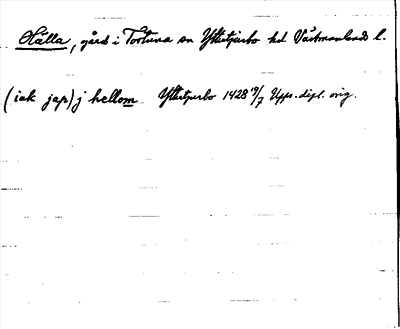 Hälla, gård i Tortuna sn Yttertjurbo hd Västmanlands l.
(iak jap) j hellom Yttertjurbo 1428 19/7 Upps. dipl. orig.